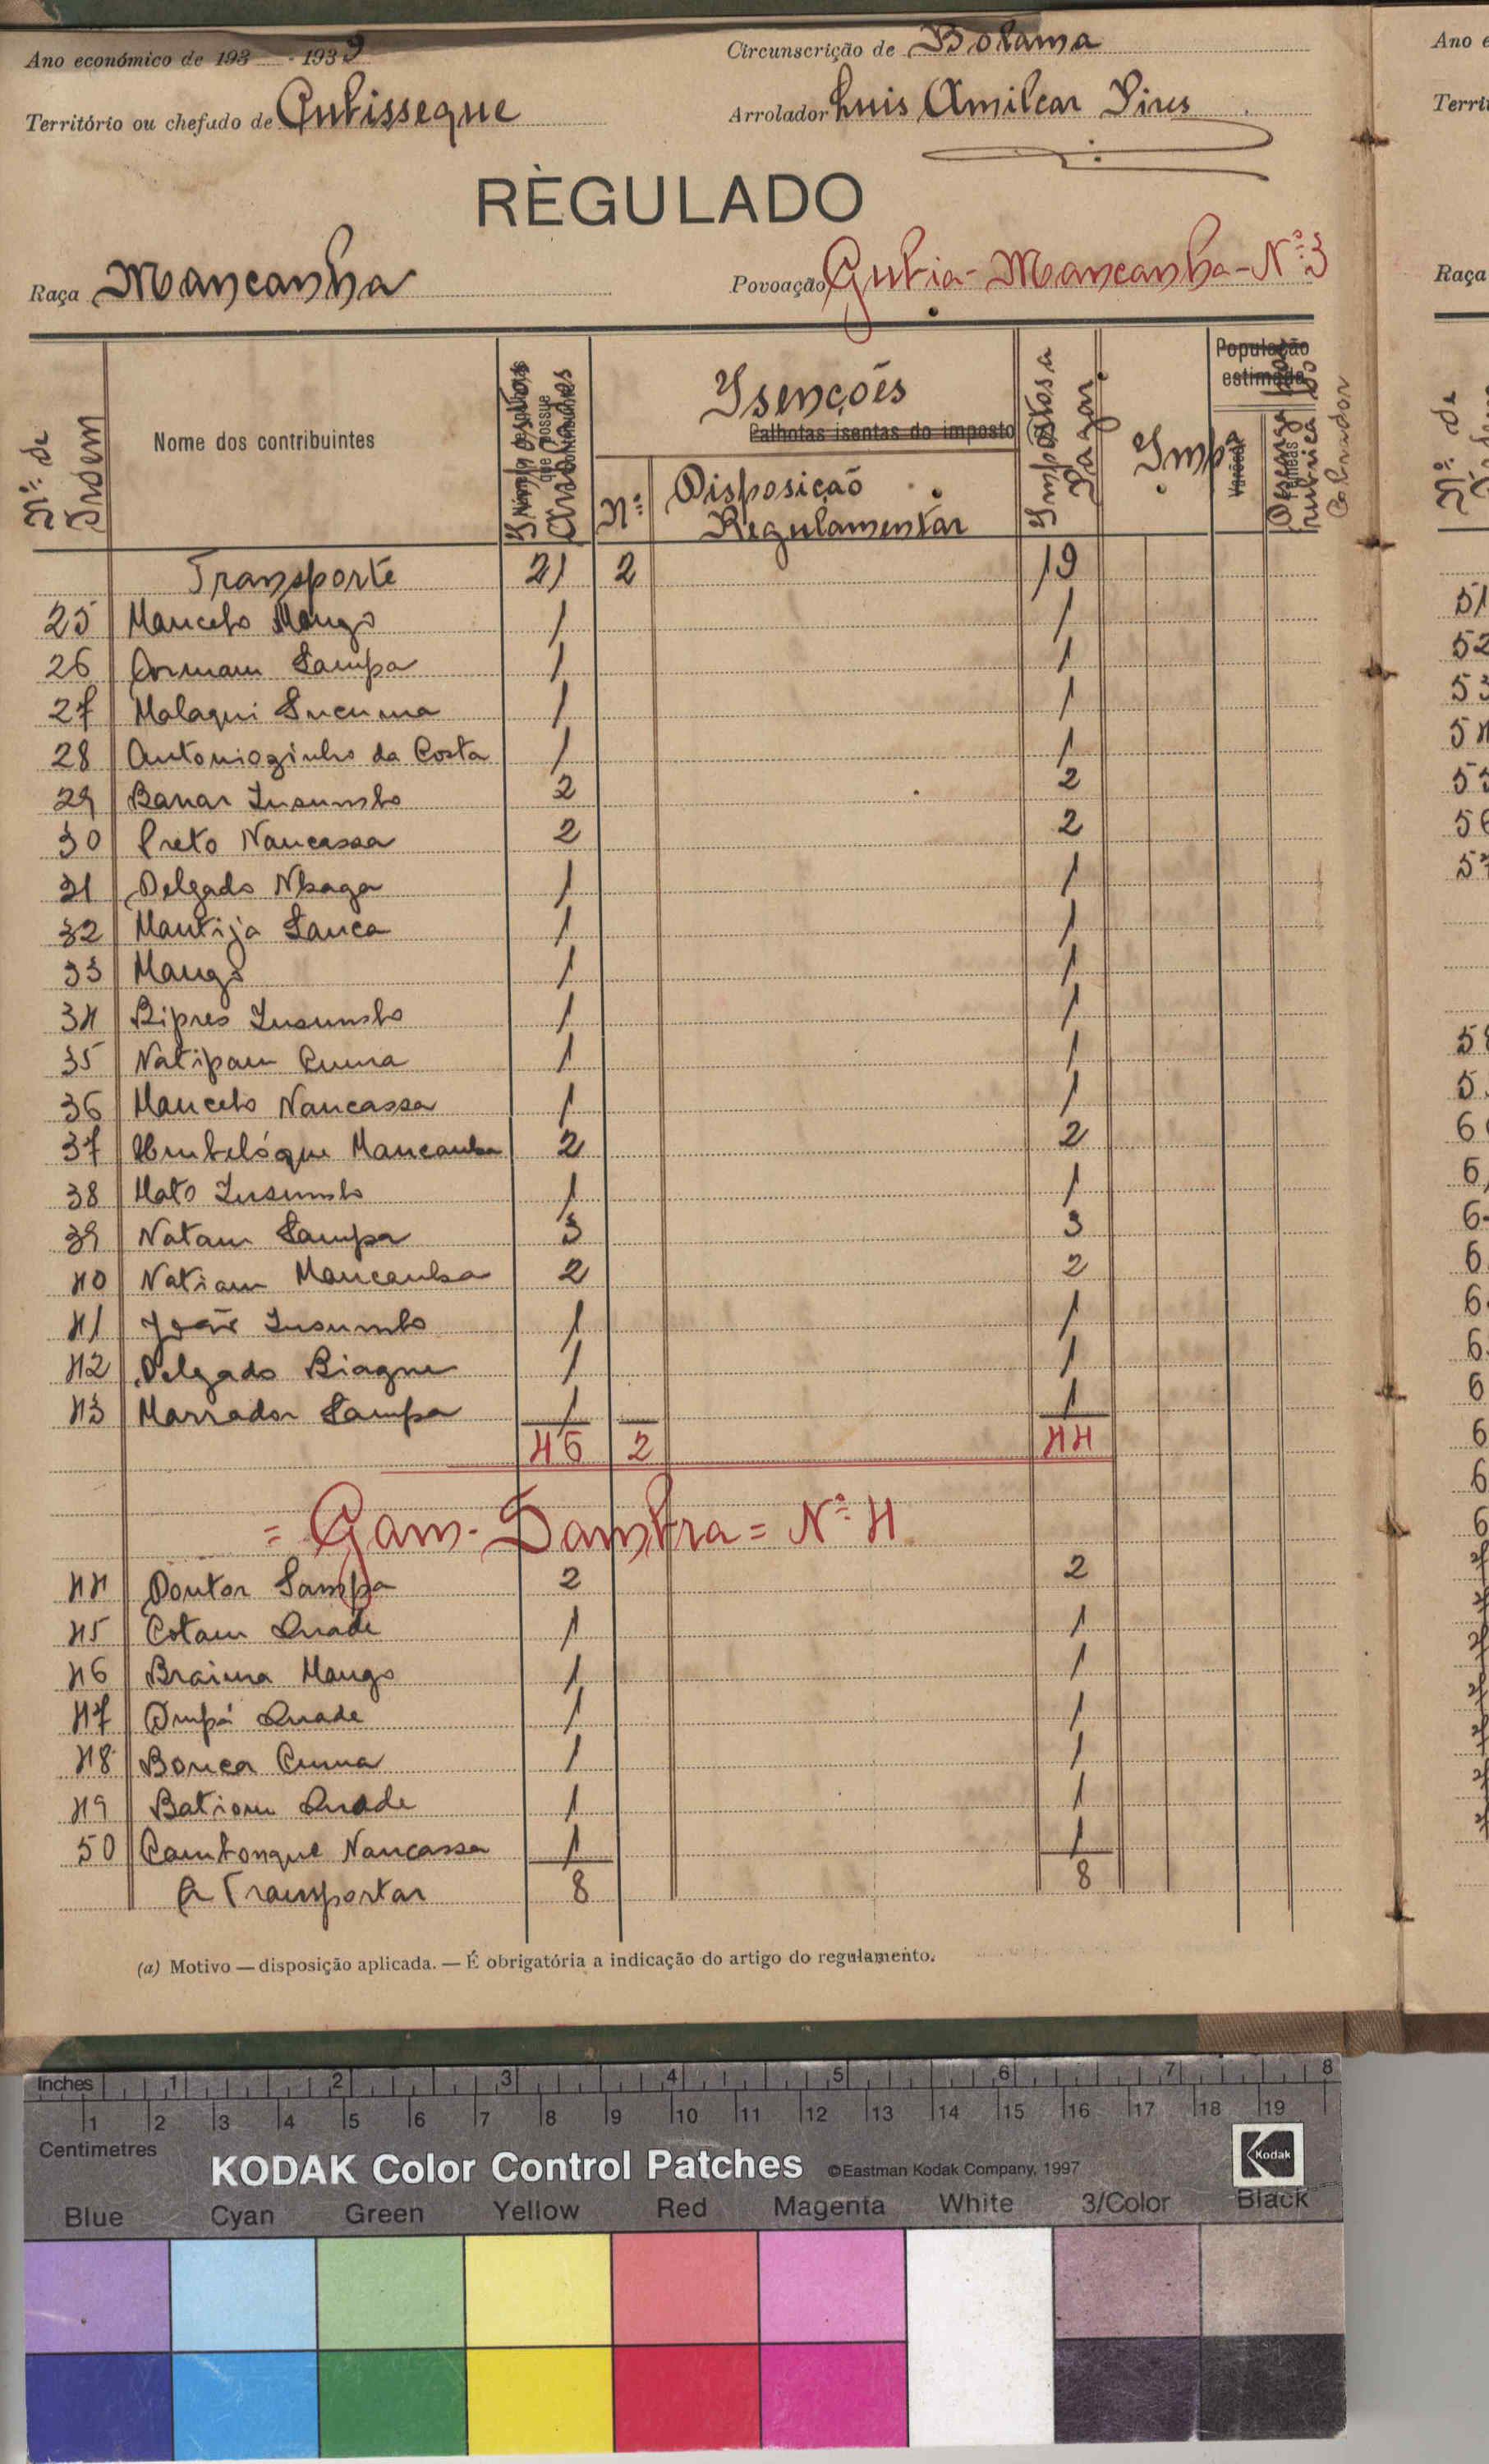 Ano económico de 193 - 1939
Circunscrição de Bolama
Território ou chefado de Cubisseque
Arrolador Luis Amilcar Pires
RÈGULADO
Raça Mancanha
Povoação Gubia - Mancanha - Nº 3
Nº de Ordem
Nome dos contribuintes
Isenções
Palhotas isentas do imposto
Nº
Disposição Regulamentar
Impostos a Pagar
Imp
População estimada
Varões
Transporte 21 2 19
25 Marcelo Mango 1 1
26 Armam Sampa 1 1
27 Malaqui Sucuma 1 1
28 Antoniozinho da Costa 1 1
29 Banar Insumbo 2 2
30 Preto Nancassa 2 2
31 Delgado Nhaga 1 1
32 Mantija Sanca 1 1
33 Mango 1 1
34 Bipres Insumbo 1 1
35 Natipam Cuma 1 1
36 Marcelo Nancassa 1 1
37 Mancanha 2 2
38 Mato Insumbo 1 1
39 Natam Sampa 3 3
40 Natiam Mancanha 2 2
41 João Insumbo 1 1
42 Delgado Biague 1 1
43 Marrador Sampa 1 1
46 2 44
= Gam-Sambra = Nº 4
44 Doutor Sampa 2 2
45 Cotam Quade 1 1
46 Braima Mango 1 1
47 Dupá Quade 1 1
48 Bouca Cuma 1 1
49 Batiom Quade 1 1
50 Cambonque Nancassa 1 1
A Transportar 8 8
(a) Motivo — disposição aplicada. — É obrigatória a indicação do artigo do regulamento.
Ano e
Territ
Raça
Nº de
51
52
53
54
55
56
57
Inches 1 2 3 4 5 6 7 8
1 2 3 4 5 6 7 8 9 10 11 12 13 14 15 16 17 18 19
Centimetres
KODAK Color Control Patches ©Eastman Kodak Company, 1997 Kodak
Blue Cyan Green Yellow Red Magenta White 3/Color Black